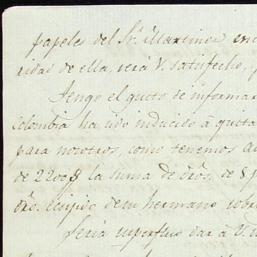 papeles del Sr. Martinez en
ridos de ella, verá V. satisfecho,
Tengo el gusto de informar
Colombia ha sido inducido á quitar
para nosotros, como tenemos
de 2200 $ la suma de dros. de
dro. exijido de su hermano
Seria superfluo dar á V.